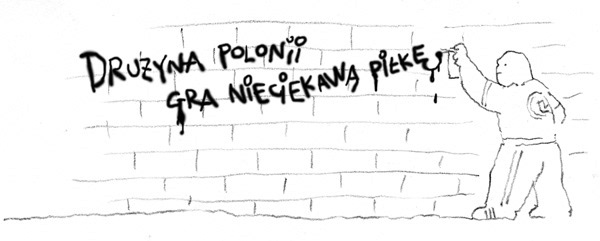 DRUŻYNA POLONII
GRA NIECIEKAWĄ PIŁKĘ